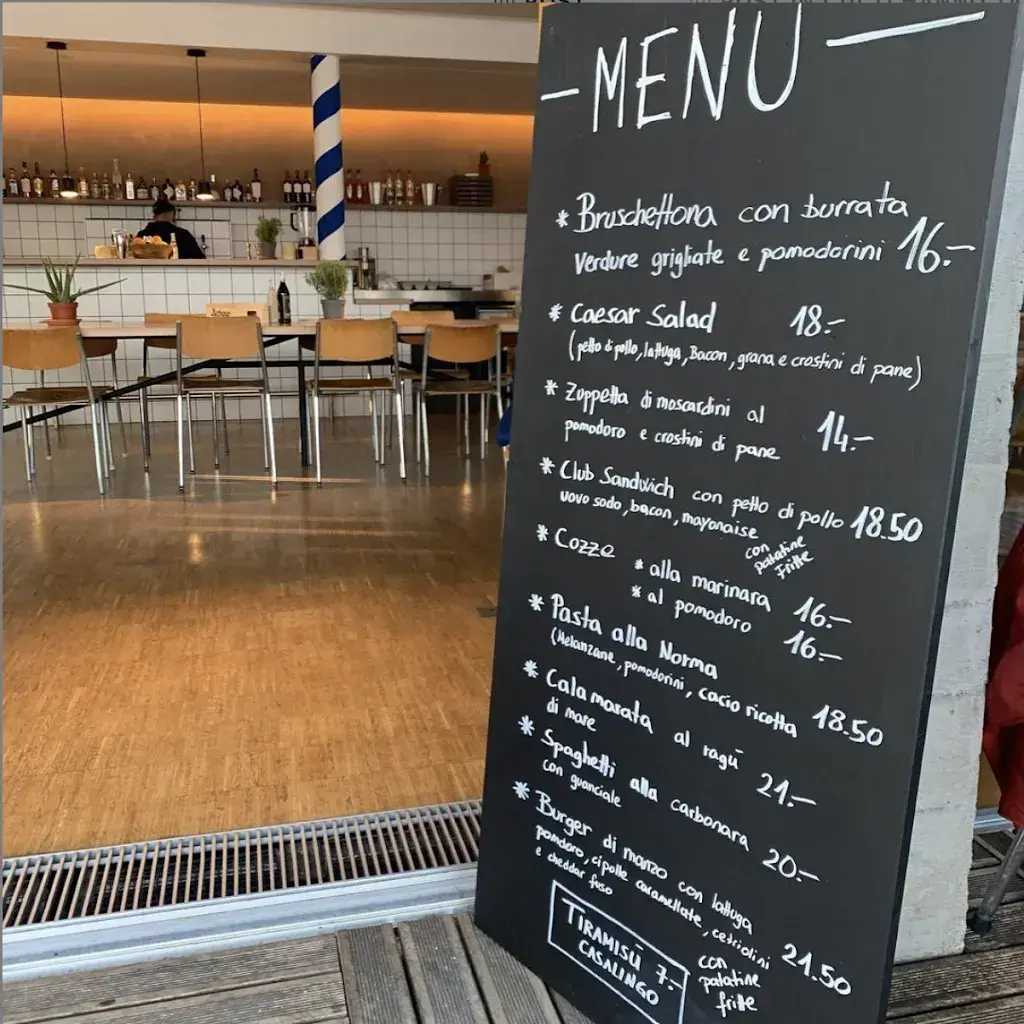 — MENÚ —
* Bruschettona con burrata
verdure grigliate e pomodorini 16.–
* Caesar Salad 18.–
(petto di pollo, lattuga, Bacon, grana e crostini di pane)
* Zuppetta di moscardini al
pomodoro e crostini di pane 14.–
* Club Sandwich con petto di pollo 18.50
uovo sodo, bacon, mayonaise
con
patatine
fritte
* Cozze
* alla marinara 16.–
* al pomodoro 16.–
* Pasta alla Norma
(Melanzane, pomodorini, cacio ricotta 18.50
* Calamarata al ragù
di mare 21.–
* Spaghetti alla carbonara
con guanciale 20.–
* Burger di manzo con lattuga
pomdoro, cipolle caramellate, cetriolini
e cheddar fuso 21.50
con
patatine
fritte
TIRAMISÙ 7.–
CASALINGO